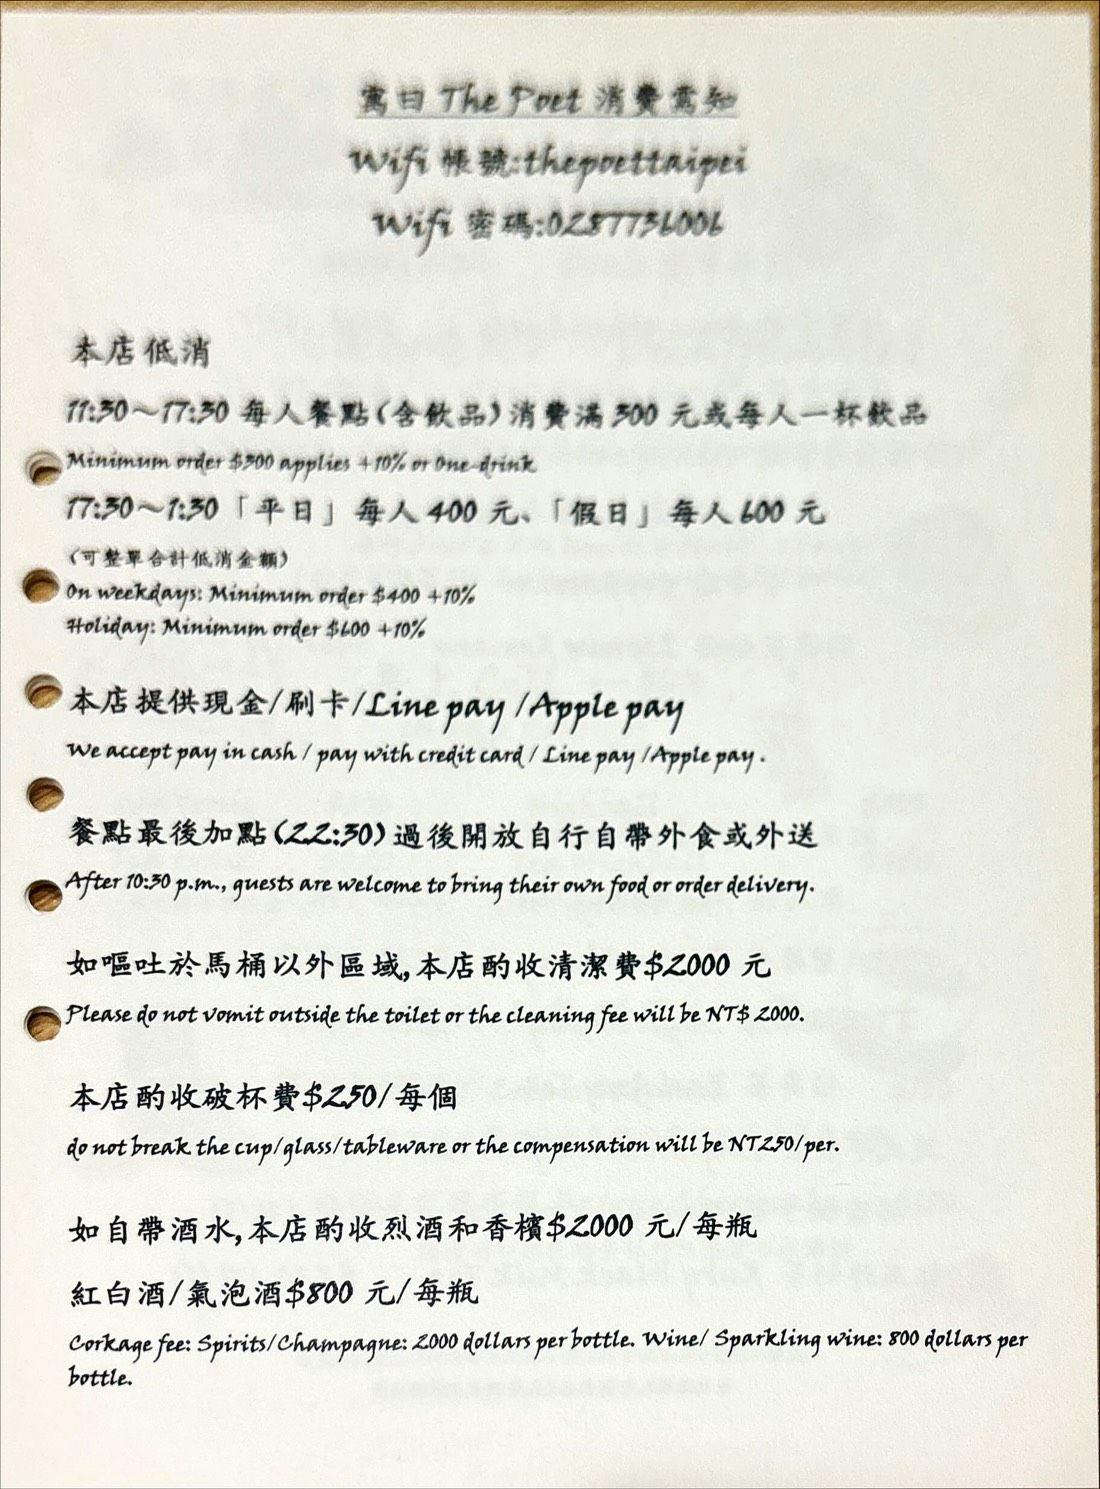 寓曰 The Poet 消費需知
Wifi 帳號:thepoettaipei
Wifi 密碼:0287736006
本店低消
11:30～17:30 每人餐點(含飲品)消費滿 300 元或每人一杯飲品
Minimum order $300 applies +10% or One-drink
17:30～1:30「平日」每人 400 元、「假日」每人 600 元
(可整單合計低消金額)
On weekdays: Minimum order $400 +10%
Holiday: Minimum order $600 +10%
本店提供現金/刷卡/Line pay /Apple pay
We accept pay in cash / pay with credit card / Line pay /Apple pay .
餐點最後加點(22:30)過後開放自行自帶外食或外送
After 10:30 p.m., guests are welcome to bring their own food or order delivery.
如嘔吐於馬桶以外區域,本店酌收清潔費$2000 元
Please do not vomit outside the toilet or the cleaning fee will be NT$ 2000.
本店酌收破杯費$250/每個
do not break the cup/glass/tableware or the compensation will be NT250/per.
如自帶酒水,本店酌收烈酒和香檳$2000 元/每瓶
紅白酒/氣泡酒$800 元/每瓶
Corkage fee: Spirits/Champagne: 2000 dollars per bottle. Wine/ Sparkling wine: 800 dollars per
bottle.